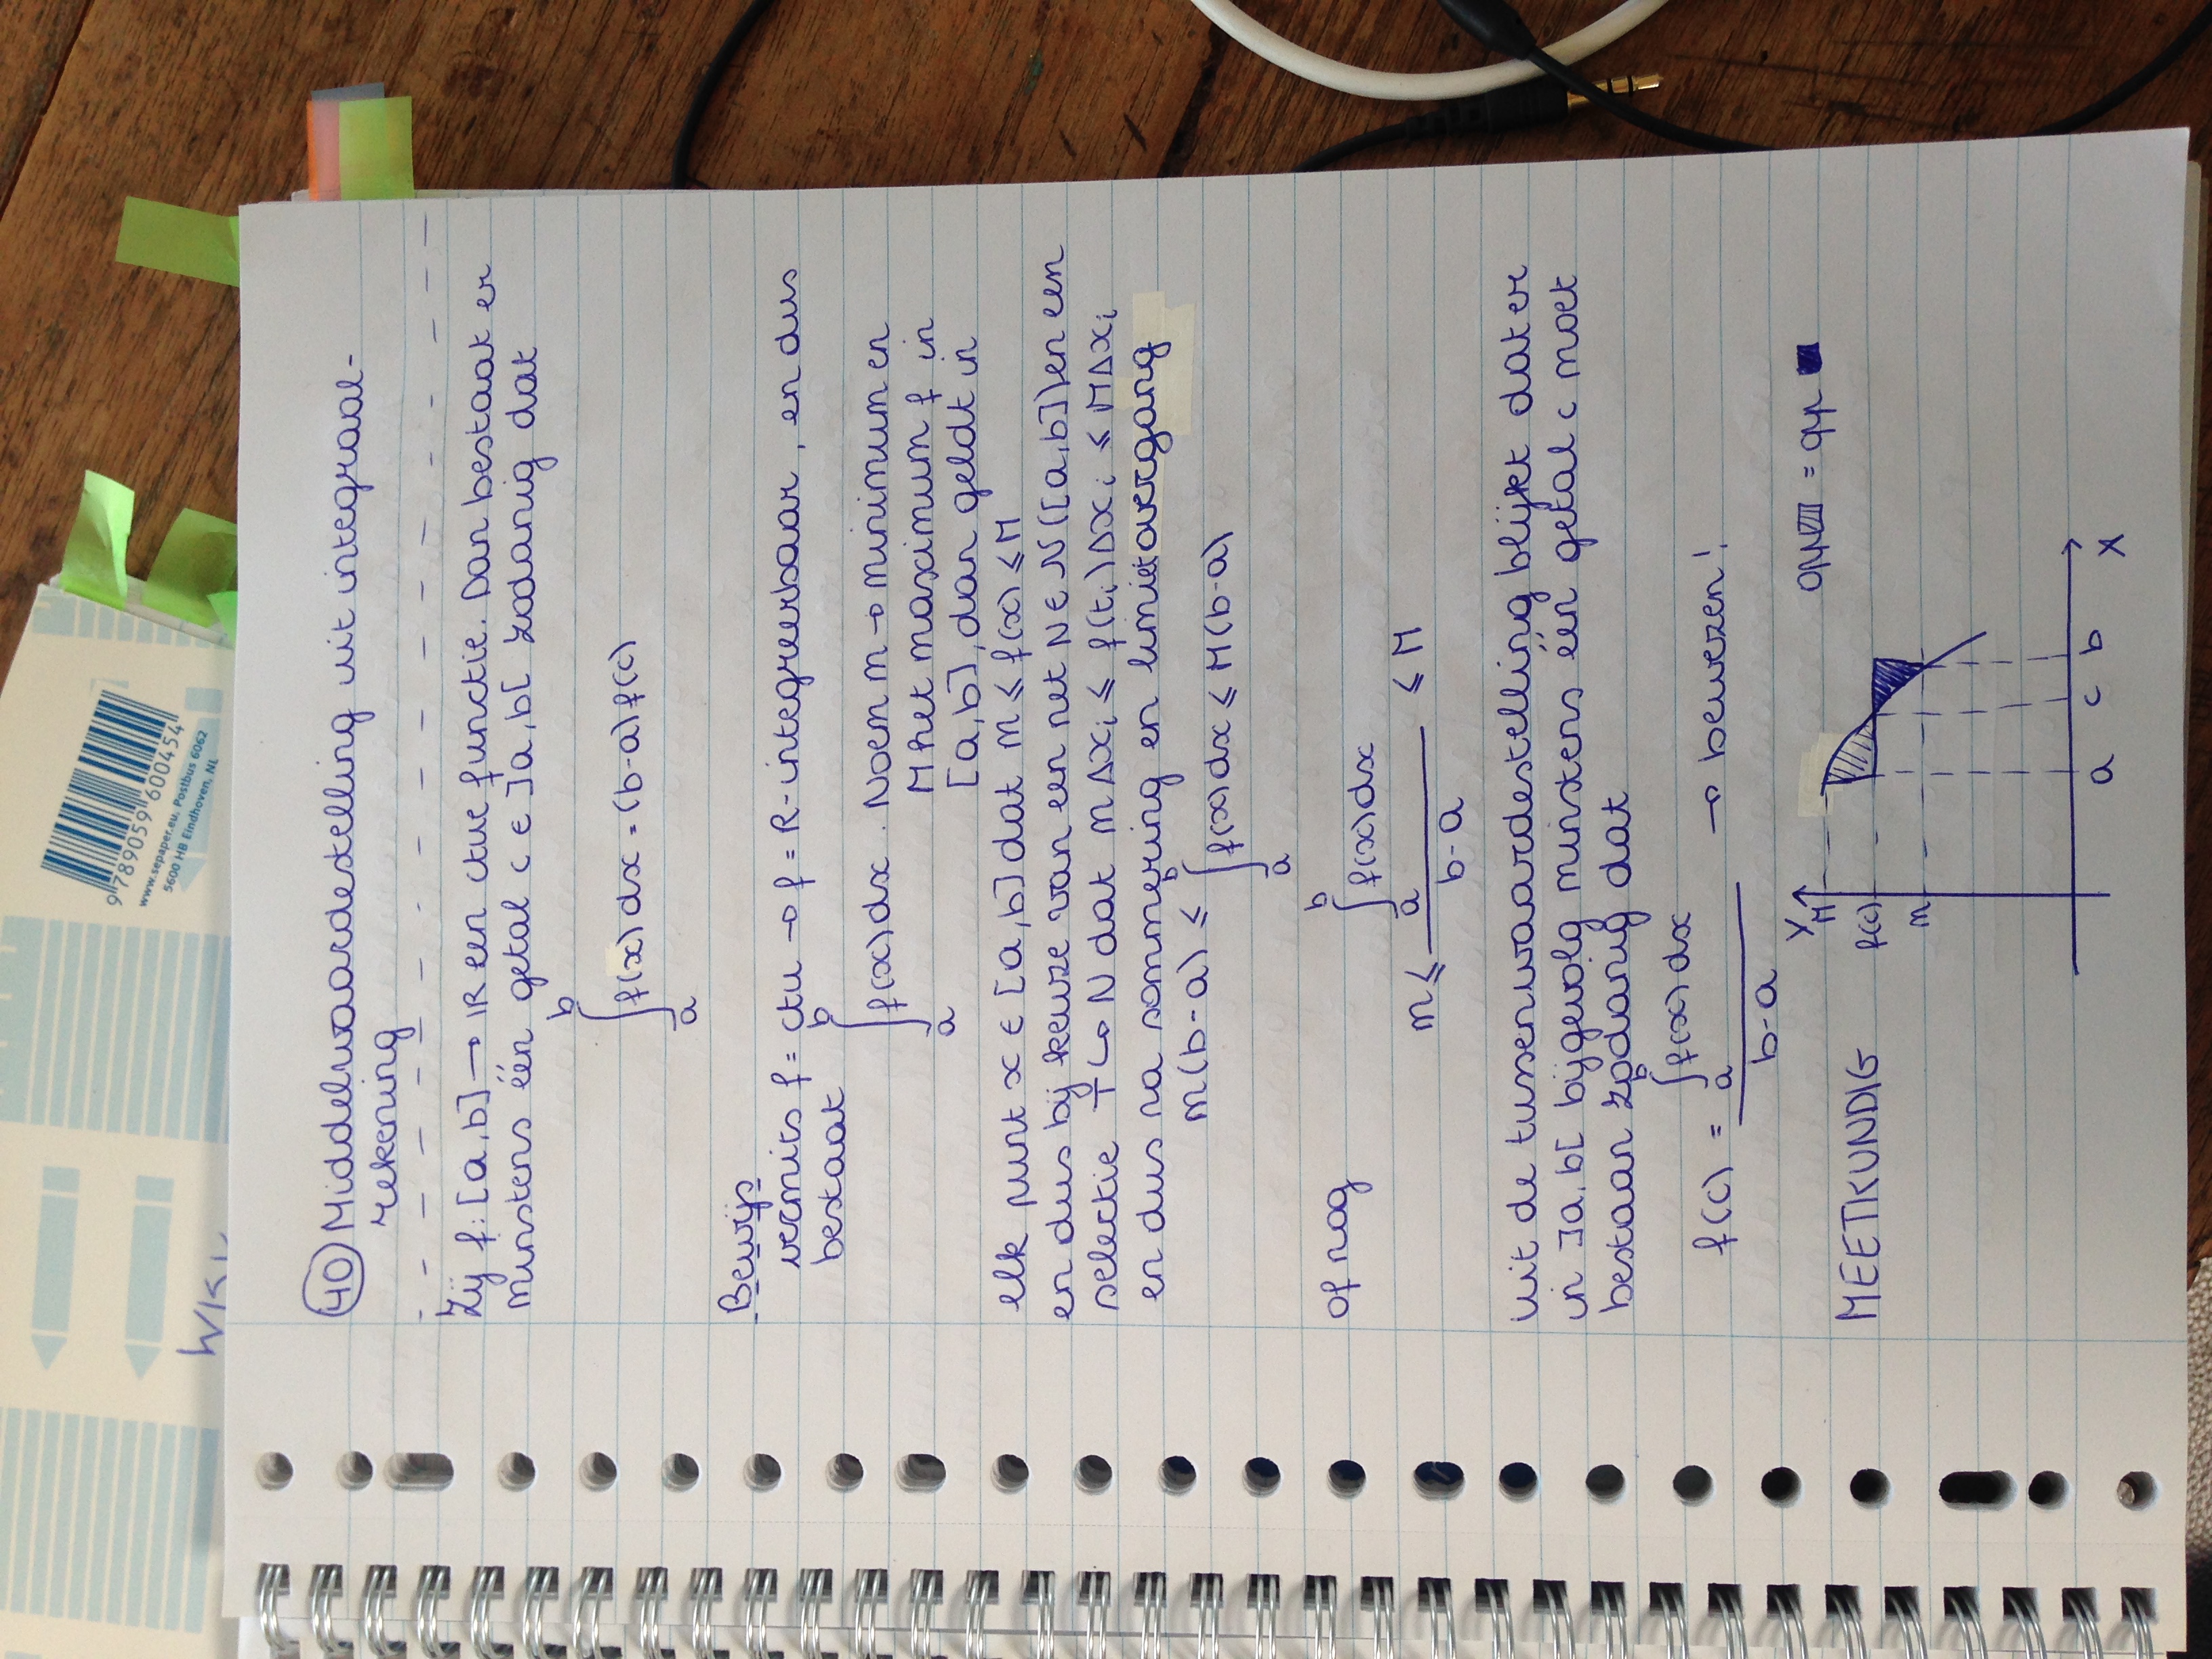 9 789059 600454
www.sepaper.eu, Postbus 6062
5600 HB Eindhoven, NL
40 Middelwaardestelling uit integraal-
rekening
Zij f: [a,b] → ℝ een ctue functie. Dan bestaat er
minstens één getal c ∈ ]a,b[ zodanig dat
∫_a^b f(x) dx = (b-a) f(c)
Bewijs
vermits f = ctu → f = R-integreerbaar, en dus
bestaat ∫_a^b f(x) dx. Noem m → minimum en
M het maximum f in
[a,b], dan geldt in
elk punt x ∈ [a,b] dat m ≤ f(x) ≤ M
en dus bij keuze van een net N ∈ N([a,b]) en een
selectie T ↪ N dat m Δx_i ≤ f(t_i) Δx_i ≤ M Δx_i
en dus na sommering en limietovergang
m(b-a) ≤ ∫_a^b f(x) dx ≤ M(b-a)
of nog
m ≤ ∫_a^b f(x) dx / b-a ≤ M
uit de tussenwaardestelling blijkt dat er
in ]a,b[ bijgevolg minstens één getal c moet
bestaan zodanig dat
f(c) = ∫_a^b f(x) dx / b-a → bewezen!
MEETKUNDIG
opp = opp
Y
M
f(c)
m
a c b
X